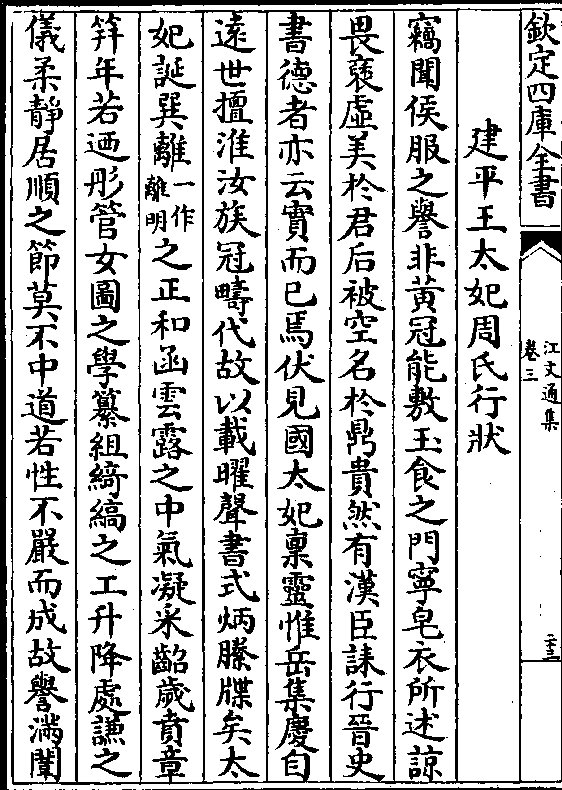 欽定四庫全書
江文通集
卷三
二十三
建平王太妃周氏行狀
竊聞侯服之譽非黃冠能敷玉食之門寧皂衣所述諒
畏褒虛美於君后被空名於鼎貴然有漢臣誄行晉史
書德者亦云實而已焉伏見國太妃稟靈惟岳集慶自
遠世擅淮汝族冠疇代故以載曜聲書式炳縢牒矣太
妃誕巽離一作離明之正和函雲露之中氣凝采齠歲賁章
笄年若迺彤管女圖之學纂組綺縞之工升降處謙之
儀柔靜居順之節莫不中道若性不嚴而成故譽滿闈